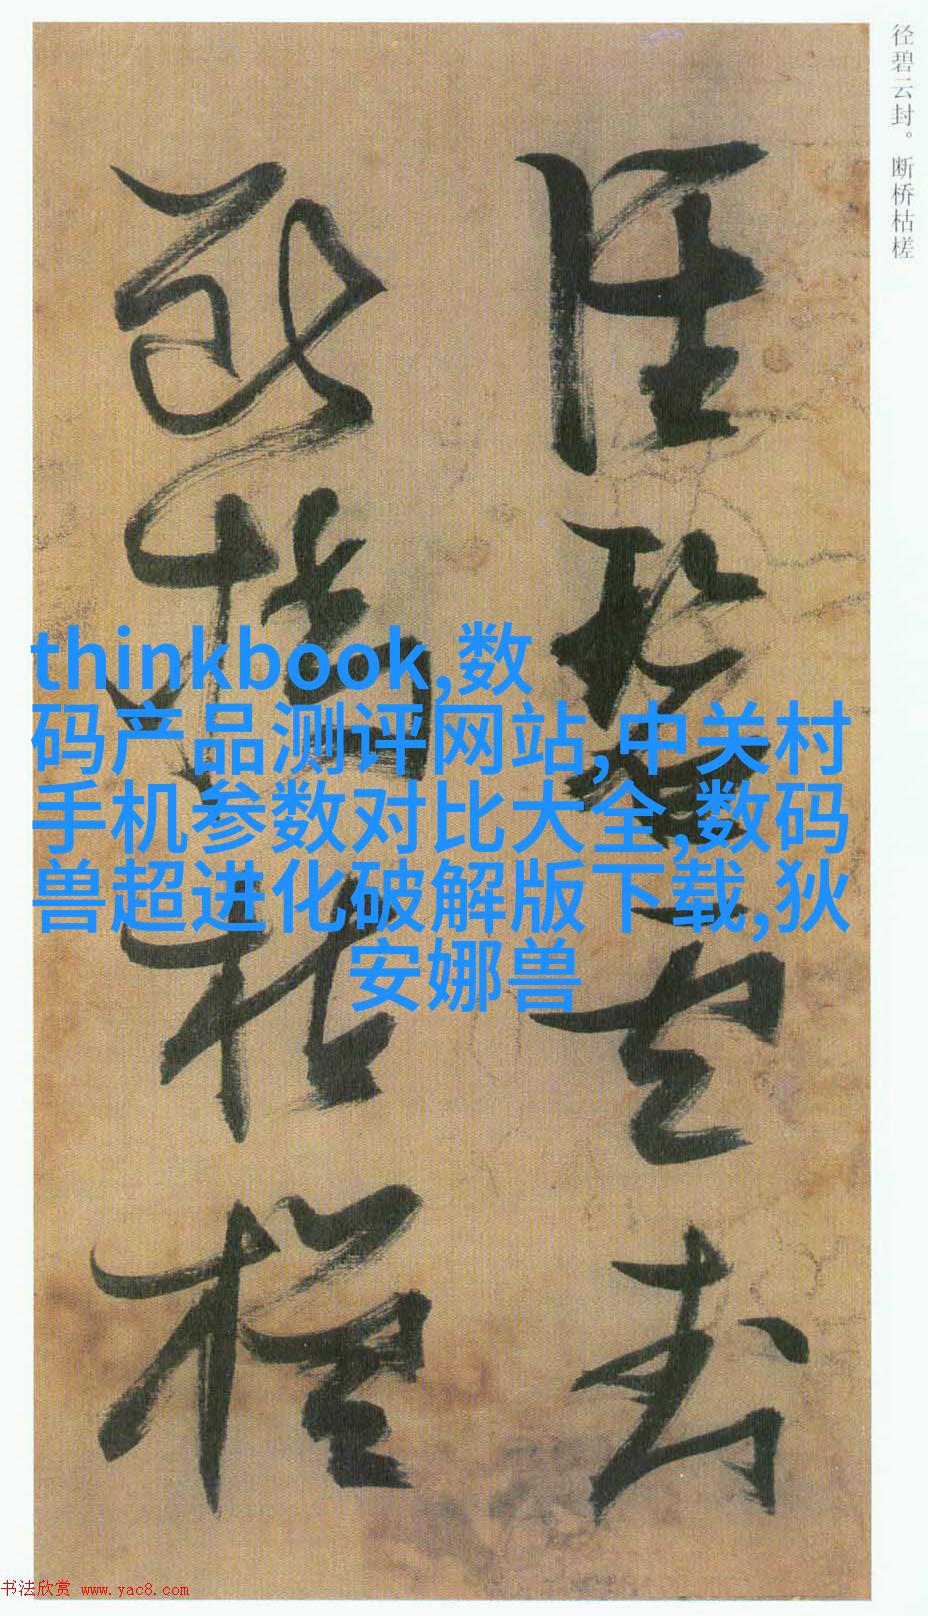 径碧云封。断桥枯槎
径碧云封
断桥枯槎
thinkbook,数
码产品测评网站,中关村
手机参数对比大全,数码
兽超进化破解版下载,狄
安娜兽
书法欣赏 www.yac8.com